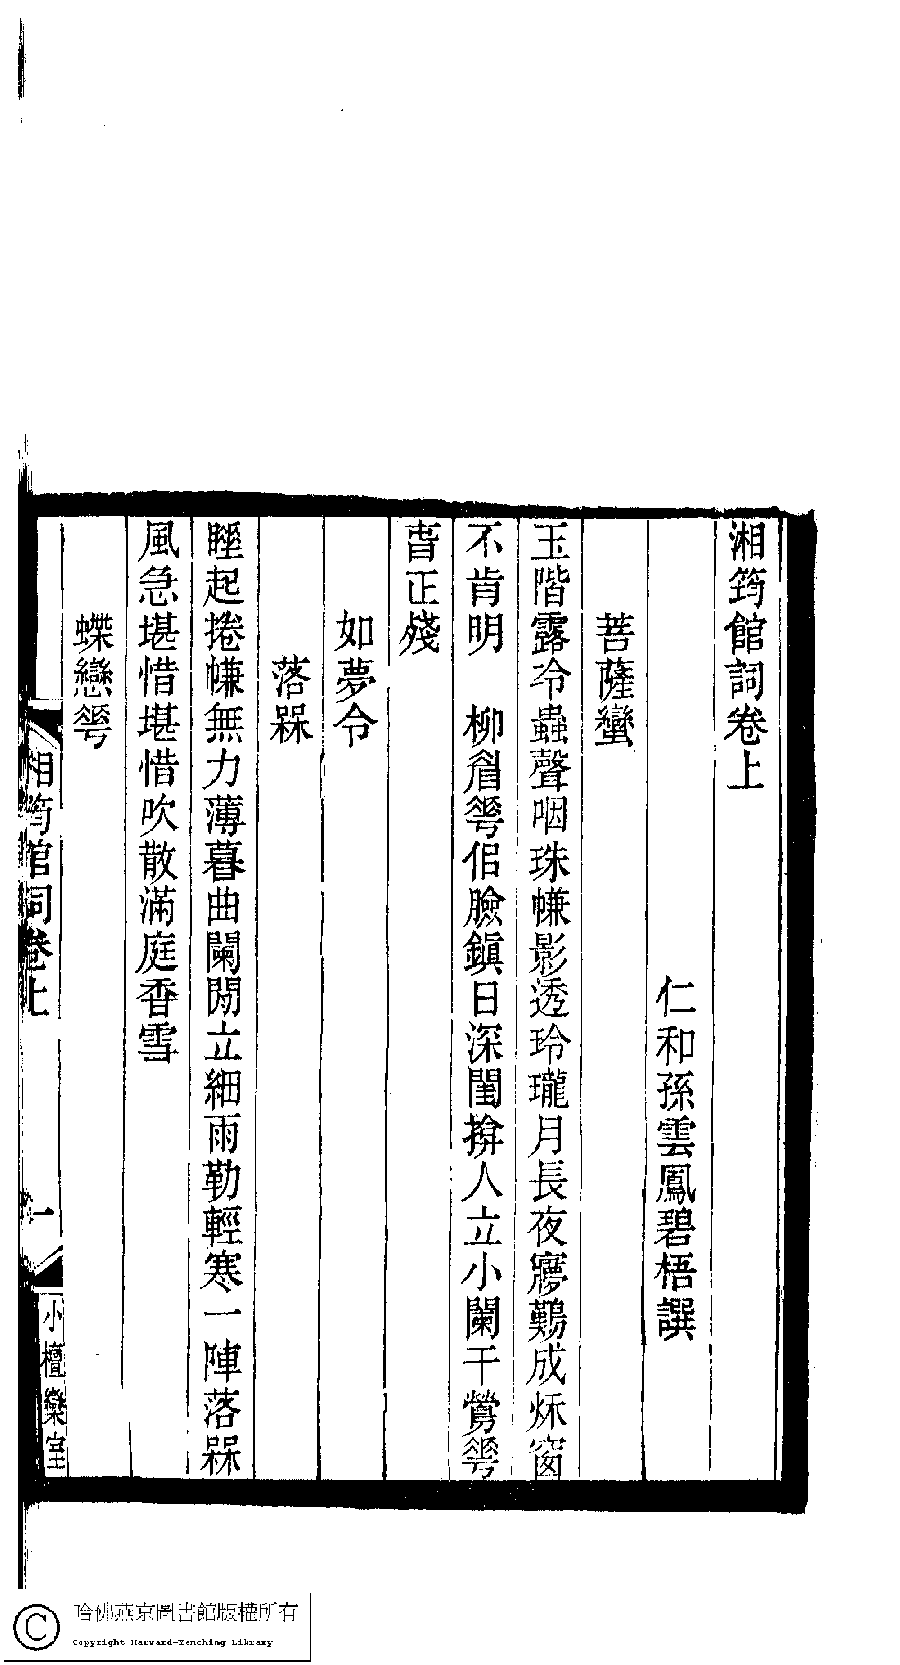 湘筠館詞卷上
仁和孫雲鳳碧梧譔
菩薩蠻
玉階露冷蟲聲咽珠㡘影透玲瓏月長夜㝱鷬成烁窗
不肯明　柳睂𠌶佀臉鎭日深閨揜人立小闌干鶯𠌶
旾正殘
如夢令
落槑
睡起捲㡘無力薄暮曲闌閒立細雨勒輕寒一陣落槑
風急堪惜堪惜吹散滿庭香雪
蝶戀𠌶
湘筠館詞卷上
一
小檀欒室
哈佛燕京圖書館版權所有
Copyright Harvard-Yenching Library